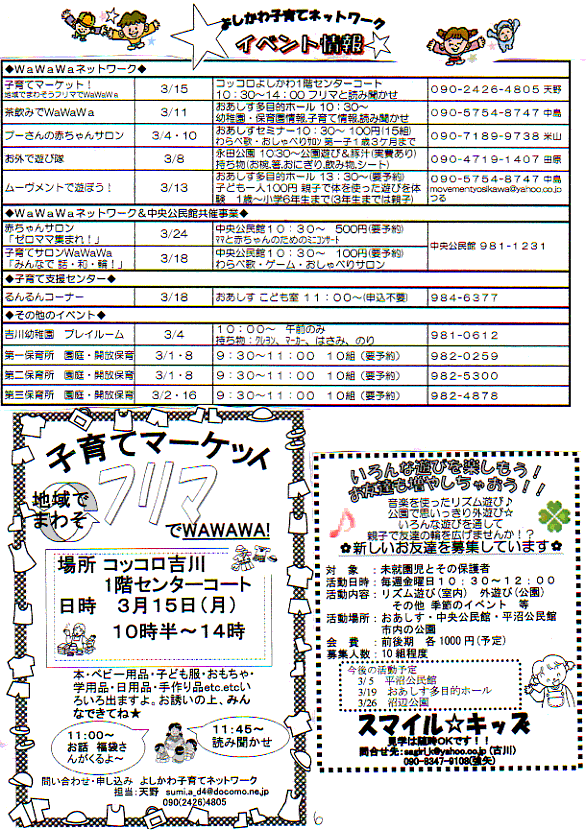 よしかわ子育てネットワーク
イベント情報
◆WaWaWaネットワーク◆
子育てマーケット！
地域でまわそうフリマでWaWaWa
3/15
コッコロよしかわ1階センターコート
10:30～14:00 フリマと読み聞かせ
090-2426-4805 天野
茶飲みでWaWaWa
3/11
おあしす多目的ホール 10:30～
幼稚園・保育園情報,子育て情報,読み聞かせ
090-5754-8747 中島
プーさんの赤ちゃんサロン
3/4・10
おあしすセミナー10:30～ 100円(15組)
わらべ歌・おしゃべりｻﾛﾝ 第一子1歳3ケ月まで
090-7189-9738 米山
お外で遊び隊
3/8
永田公園 10:30～公園遊び＆豚汁(実費あり)
持ち物(お椀,箸,おにぎり,飲み物,シート)
090-4719-1407 田原
ムーヴメントで遊ぼう！
3/13
おあしす多目的ホール 13:30～(要予約)
子ども一人100円 親子で体を使った遊びを体
験 1歳～小学6年生まで(3年生までは親子)
090-5754-8747 中島
movementyosikawa@yahoo.co.jp
つる
◆WaWaWaネットワーク＆中央公民館共催事業◆
赤ちゃんサロン
「ゼロママ集まれ！」
3/24
中央公民館10:30～ 500円(要予約)
ﾏﾏと赤ちゃんのためのﾐﾆｺﾝｻｰﾄ
中央公民館 981-1231
子育てサロンWaWaWa
「みんなで 話・和・輪！」
3/18
中央公民館10:30～ 100円(要予約)
わらべ歌・ゲーム・おしゃべりサロン
◆子育て支援センター◆
るんるんコーナー
3/18
おあしす こども室 11:00～(申込不要)
984-6377
◆その他のイベント◆
吉川幼稚園 プレイルーム
3/4
10:00～ 午前のみ
持ち物：ｸﾚﾖﾝ、ﾏｰｶｰ、はさみ、のり
981-0612
第一保育所 園庭・開放保育
3/1・8
9:30～11:00 10組（要予約）
982-0259
第二保育所 園庭・開放保育
3/1・8
9:30～11:00 10組（要予約）
982-5300
第三保育所 園庭・開放保育
3/2・16
9:30～11:00 10組（要予約）
982-4878
子育てマーケット
フリマ
地域で
まわそ
でWAWAWA!
場所 コッコロ吉川
1階センターコート
日時 3月15日(月)
10時半～14時
本・ベビー用品・子ども服・おもちゃ・
学用品・日用品・手作り品etc.etcい
ろいろ出ますよ。お誘いの上、みん
なできてね★
11:00～
お話 福袋さ
んがくるよ～
11:45～
読み聞かせ
問い合わせ・申し込み よしかわ子育てネットワーク
担当：天野 sumi.a_d4@docomo.ne.jp
090(2426)4805
いろんな遊びを楽しもう！
お友達も増やしちゃおう！！
音楽を使ったリズム遊び♪
公園で思いっきり外遊び☆
いろんな遊びを通して
親子で友達の輪を広げませんか！？
✿新しいお友達を募集しています✿
対 象 ：未就園児とその保護者
活動日時：毎週金曜日10:30～12:00
活動内容：リズム遊び(室内) 外遊び(公園)
その他 季節のイベント 等
活動場所：おあしす・中央公民館・平沼公民館
市内の公園
会 費 ：前後期 各1000円(予定)
募集人数：10組程度
今後の活動予定
3/5 平沼公民館
3/19 おあしす多目的ホール
3/26 沼辺公園
スマイル☆キッズ
見学は随時OKです！！
問合せ先：sagiri_k@yahoo.co.jp (古川)
090-8347-9108(強矢)
6